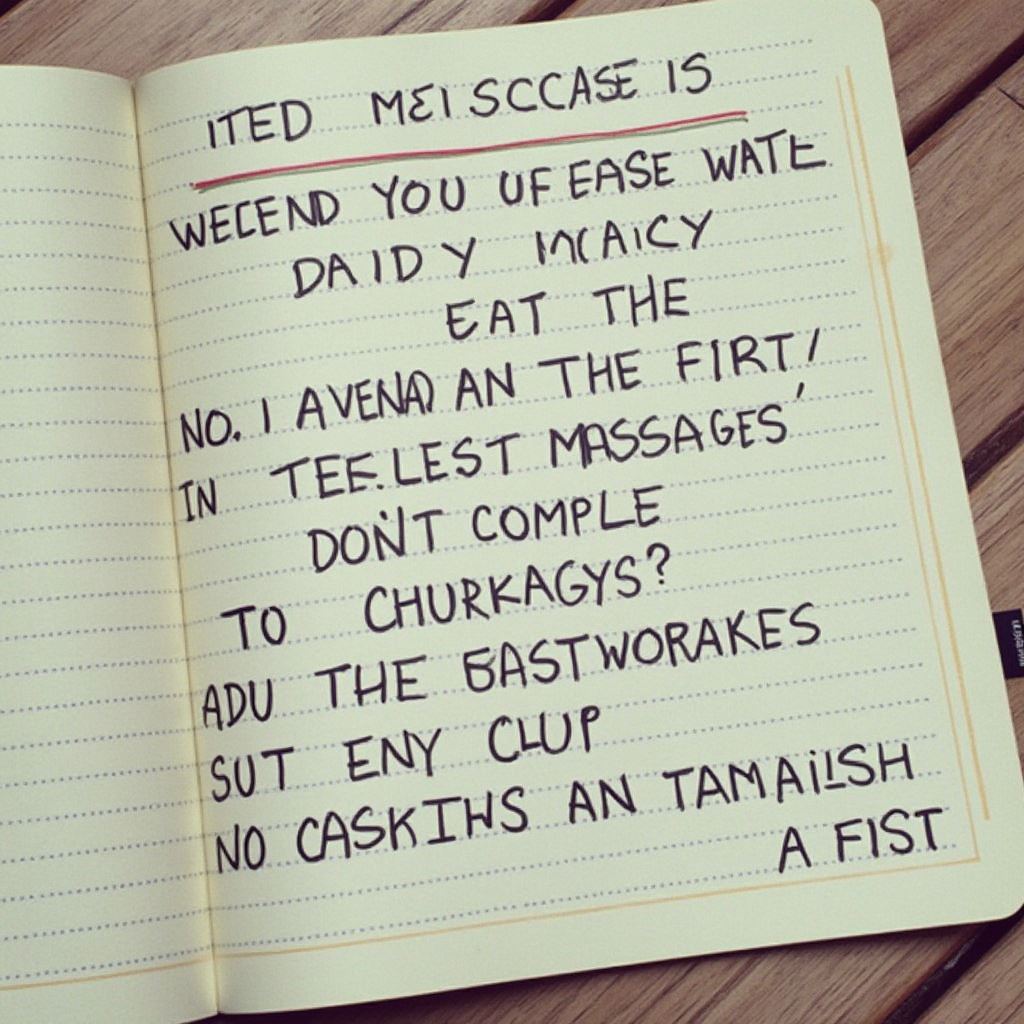 ITED MEISCCASE IS
WECEND YOU UF EASE WATE
DAIDY
EAT THE
NO. I AVENAD AN THE FIRT!
IN TEE.LEST MASSAGES'
DON'T COMPLE
TO CHURKAGYS?
ADU THE BASTWORAKES
SUT ENY CLUP
NO CASKIHS AN TAMAILSH
A FIST